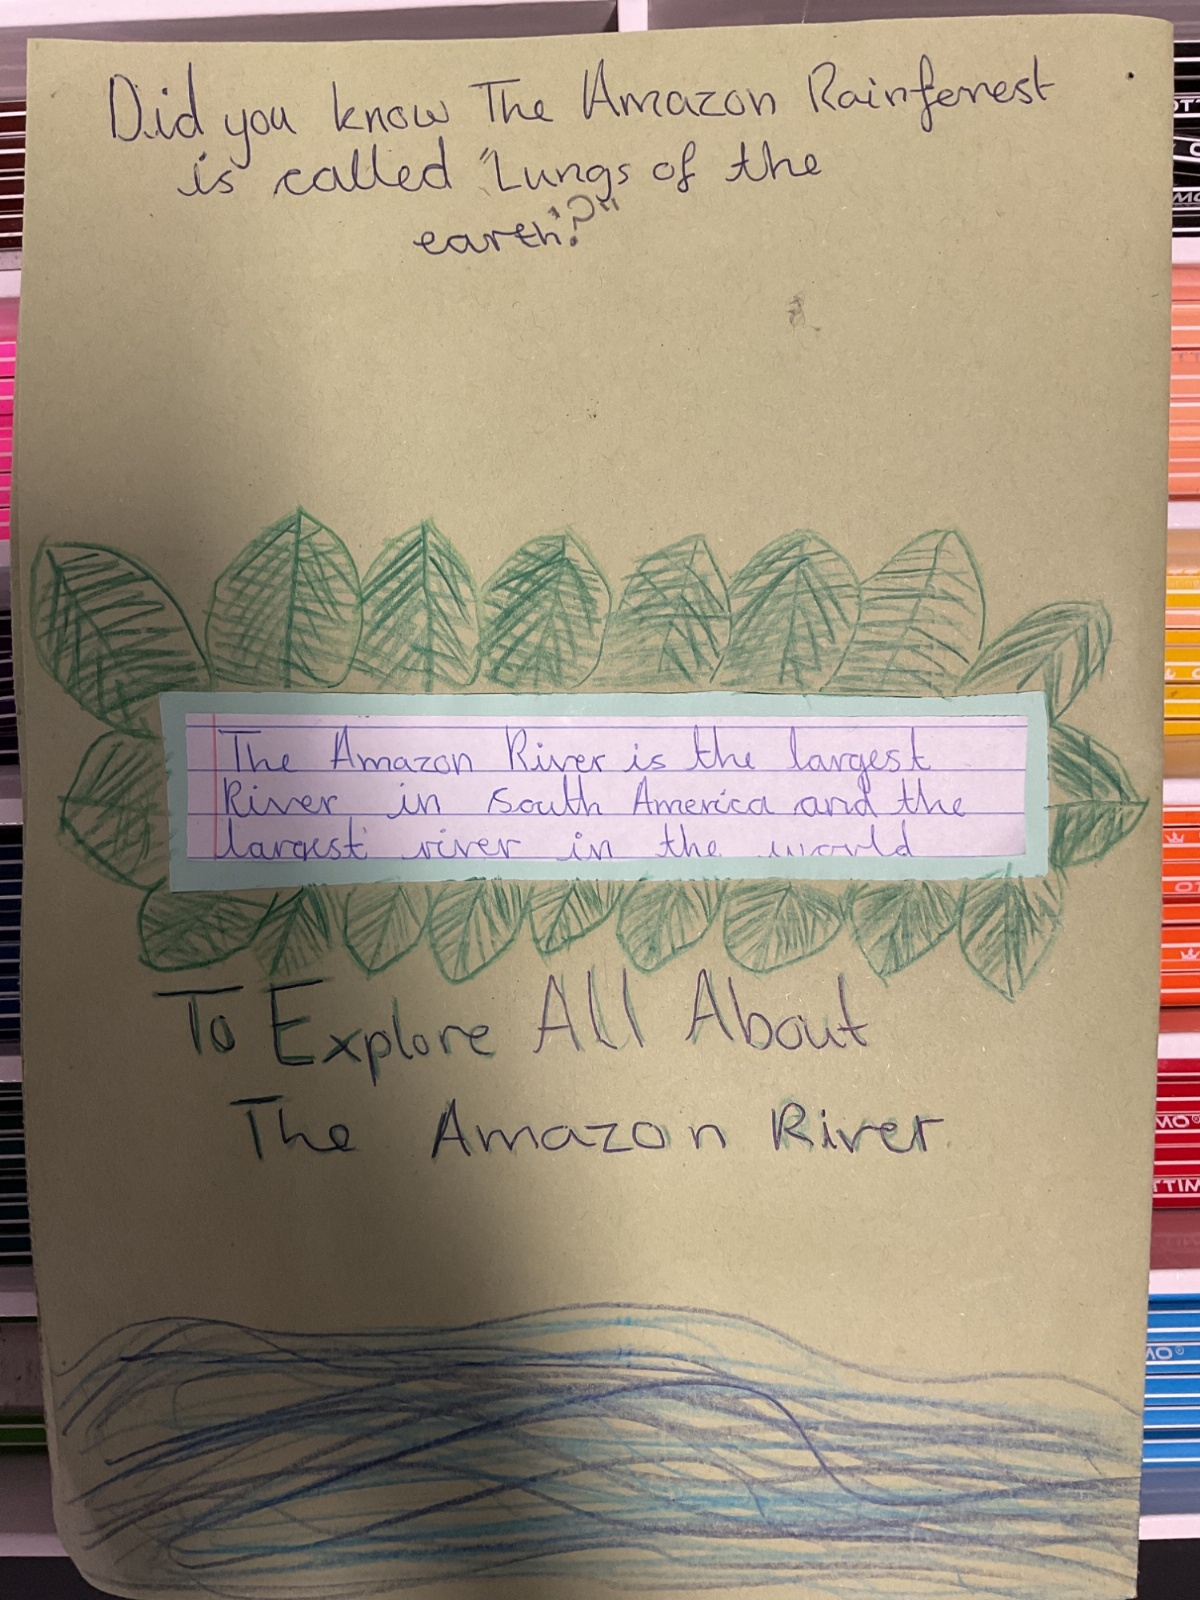 Did you know The Amazon Rainferrest
is called "Lungs of the
earth"?"
The Amazon River is the largest
River in South America and the
largest river in the world
To Explore All About
The Amazon River